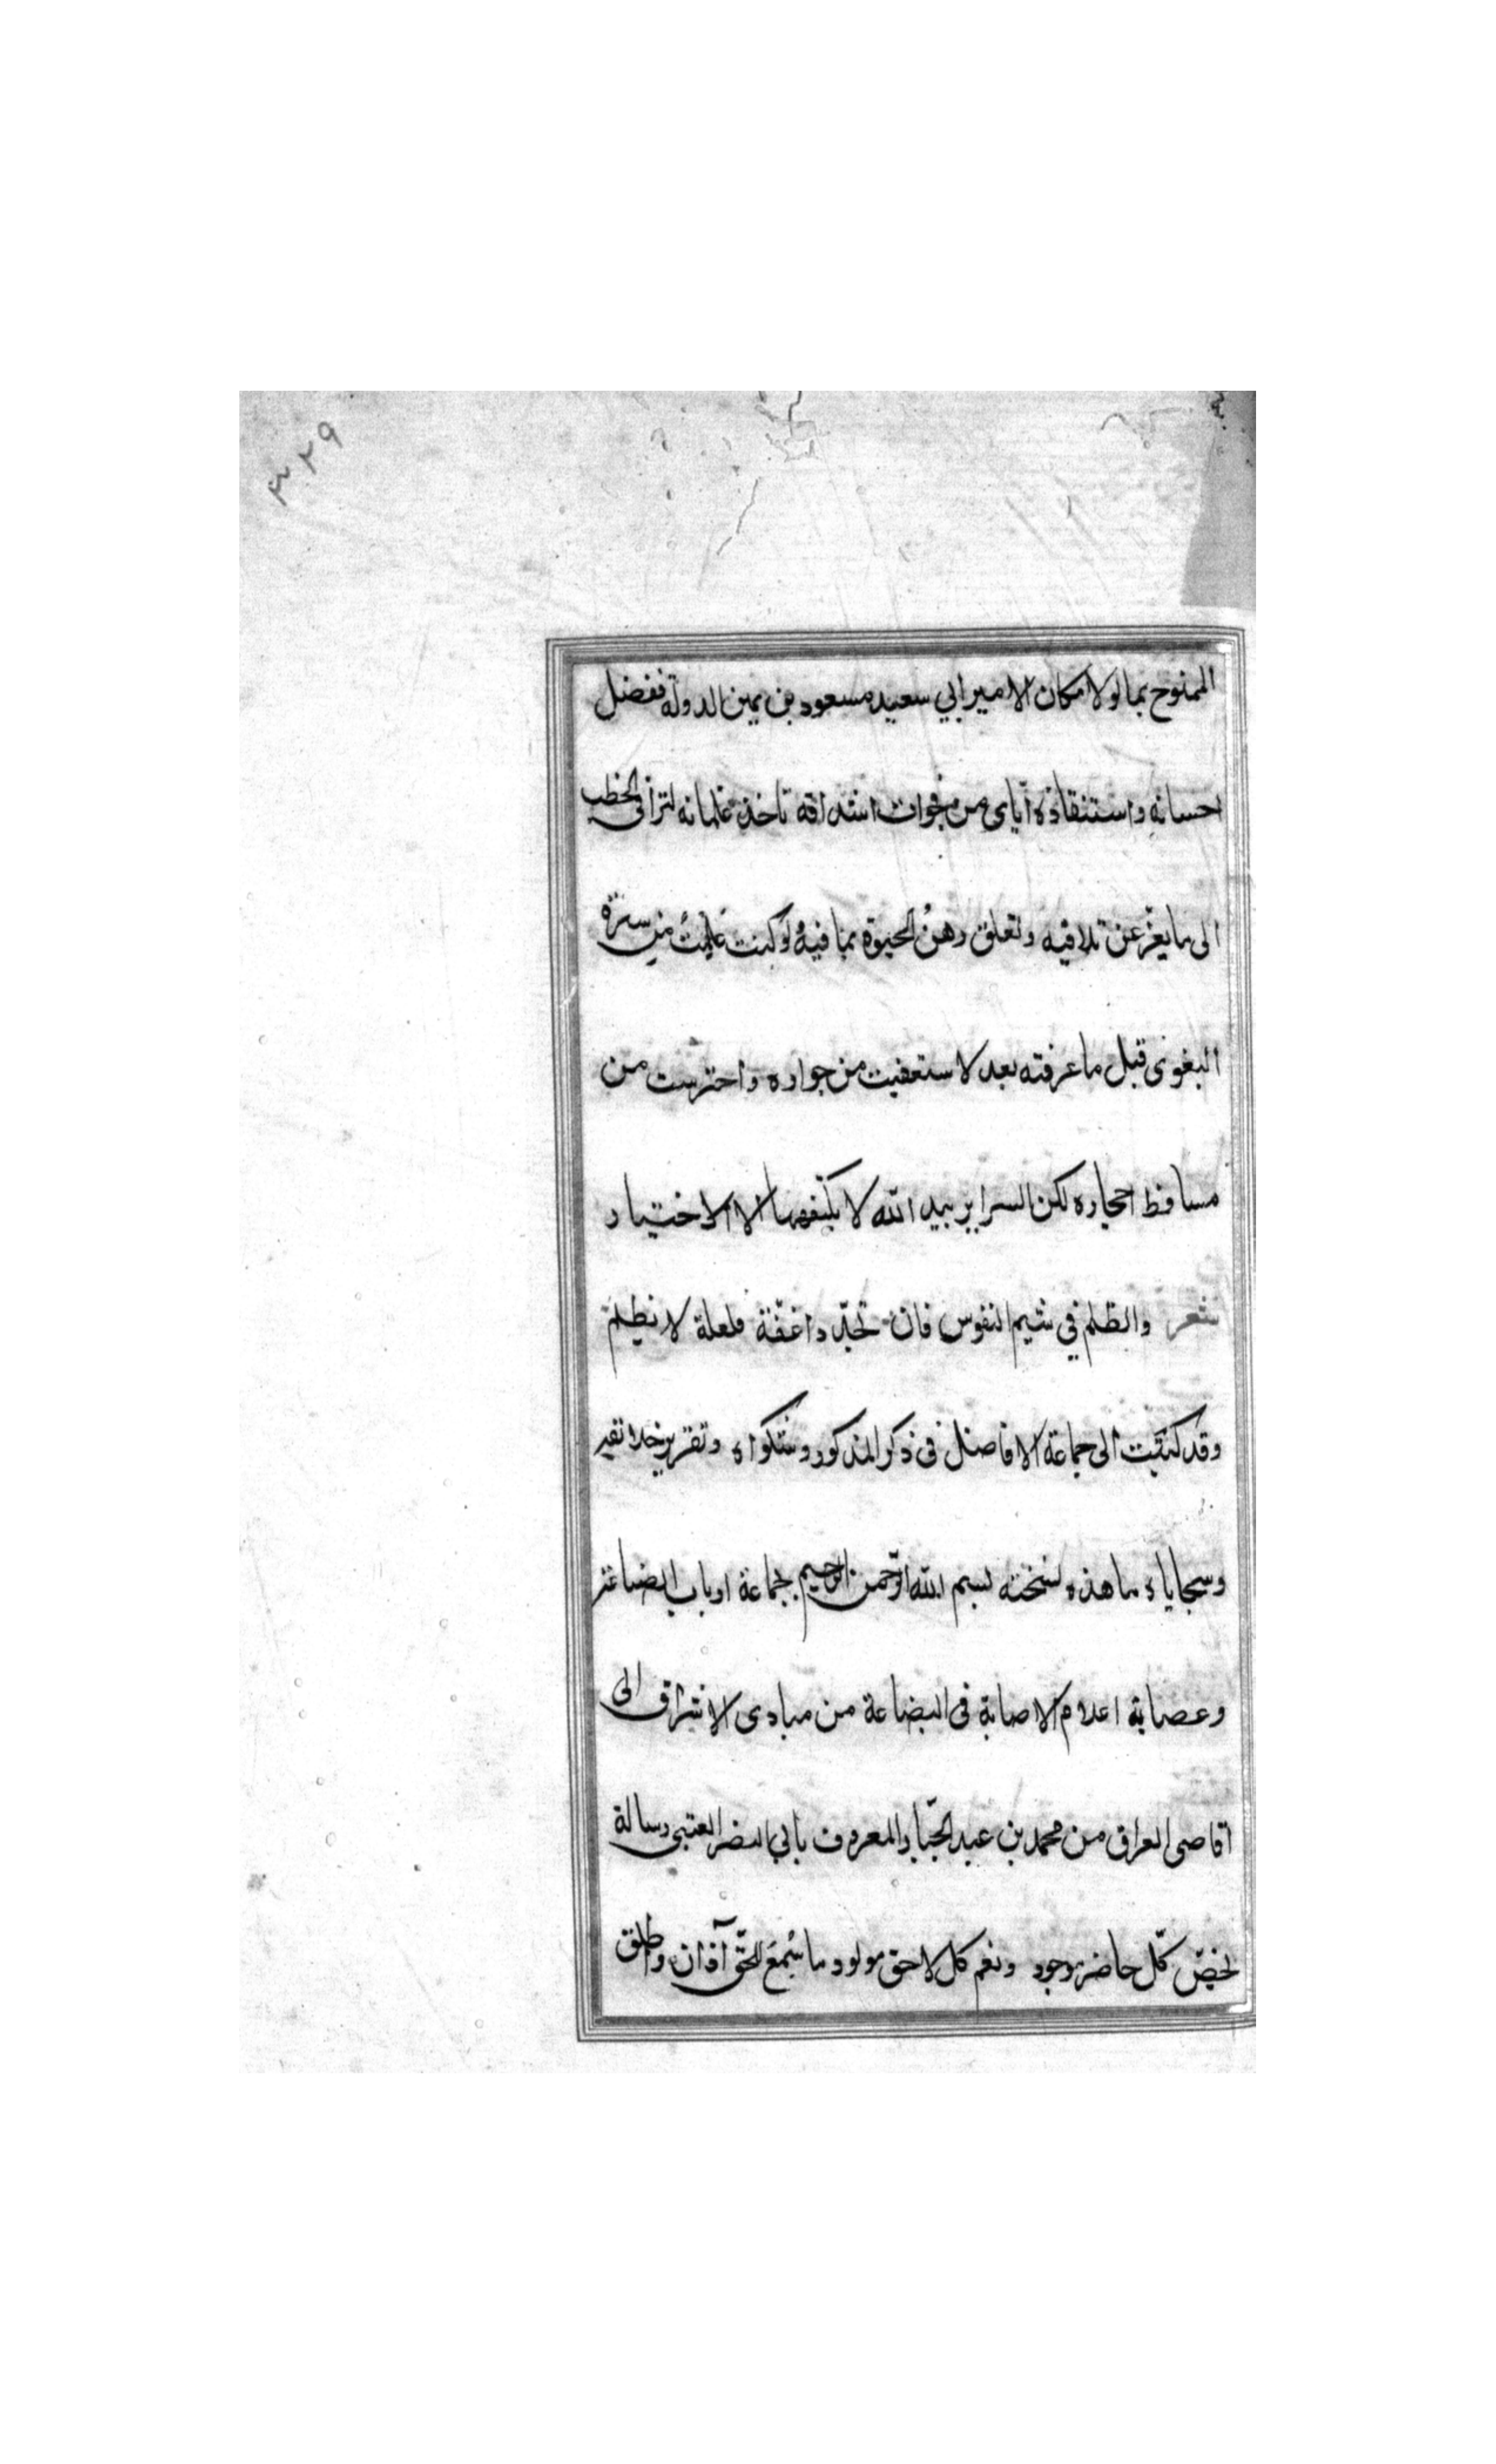 ٣٢٩
الممنوح بما لولا مكان الامير ابي سعيد مسعود بن يمين الدولة ففضل
احسانه واستنقاذه اياى من فجوات اشداقه تاخذ غلمانه لتراقى الخطب
الى ما يعز عن تلافيه وتعلق رهن الحيوة بما فيه لو كنت علمت من سره
البغوى قبل ما عرفته بعد لاستعفيت من جواره واحترست من
مساقط احجاره لكن السراير بيد الله لا يكشفها الا الاختيار
شعر والظلم في شيم النفوس فان تجد ذا عفة فلعلة لا يظلم
وقد كتبت الى جماعة الافاضل فى ذكر المذكور وشكواه وتقرير خلائقه
وسجاياه ما هذه نسخته بسم الله الرحمن الرحيم لجماعة ارباب الصناعة
وعصابة اعلام الاصابة فى البضاعة من مبادى الاشراق الى
اقاصى العراق من محمد بن عبد الجبار المعروف بابي النضر العتبى رسالة
تخص كل حاضر موجود وتعم كل لاحق مولود ما سمع للحق آذان وطلق